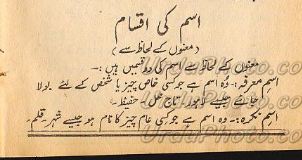 اسم کی اقسام
(معنوں کے لحاظ سے)
معنوں کے لحاظ سے اسم کی دو قسمیں ہیں :-
اسم معرفہ :- وُہ اسم ہے جو کسی خاص چیز یا شخص کے لئے بولا
جائے جیسے لاہور، تاج محل، حفیظ۔
اسم نکرہ :- وہ اسم ہے جو کسی عام چیز کا نام ہو جیسے شہر، قلم۔
UrduPhoto.com